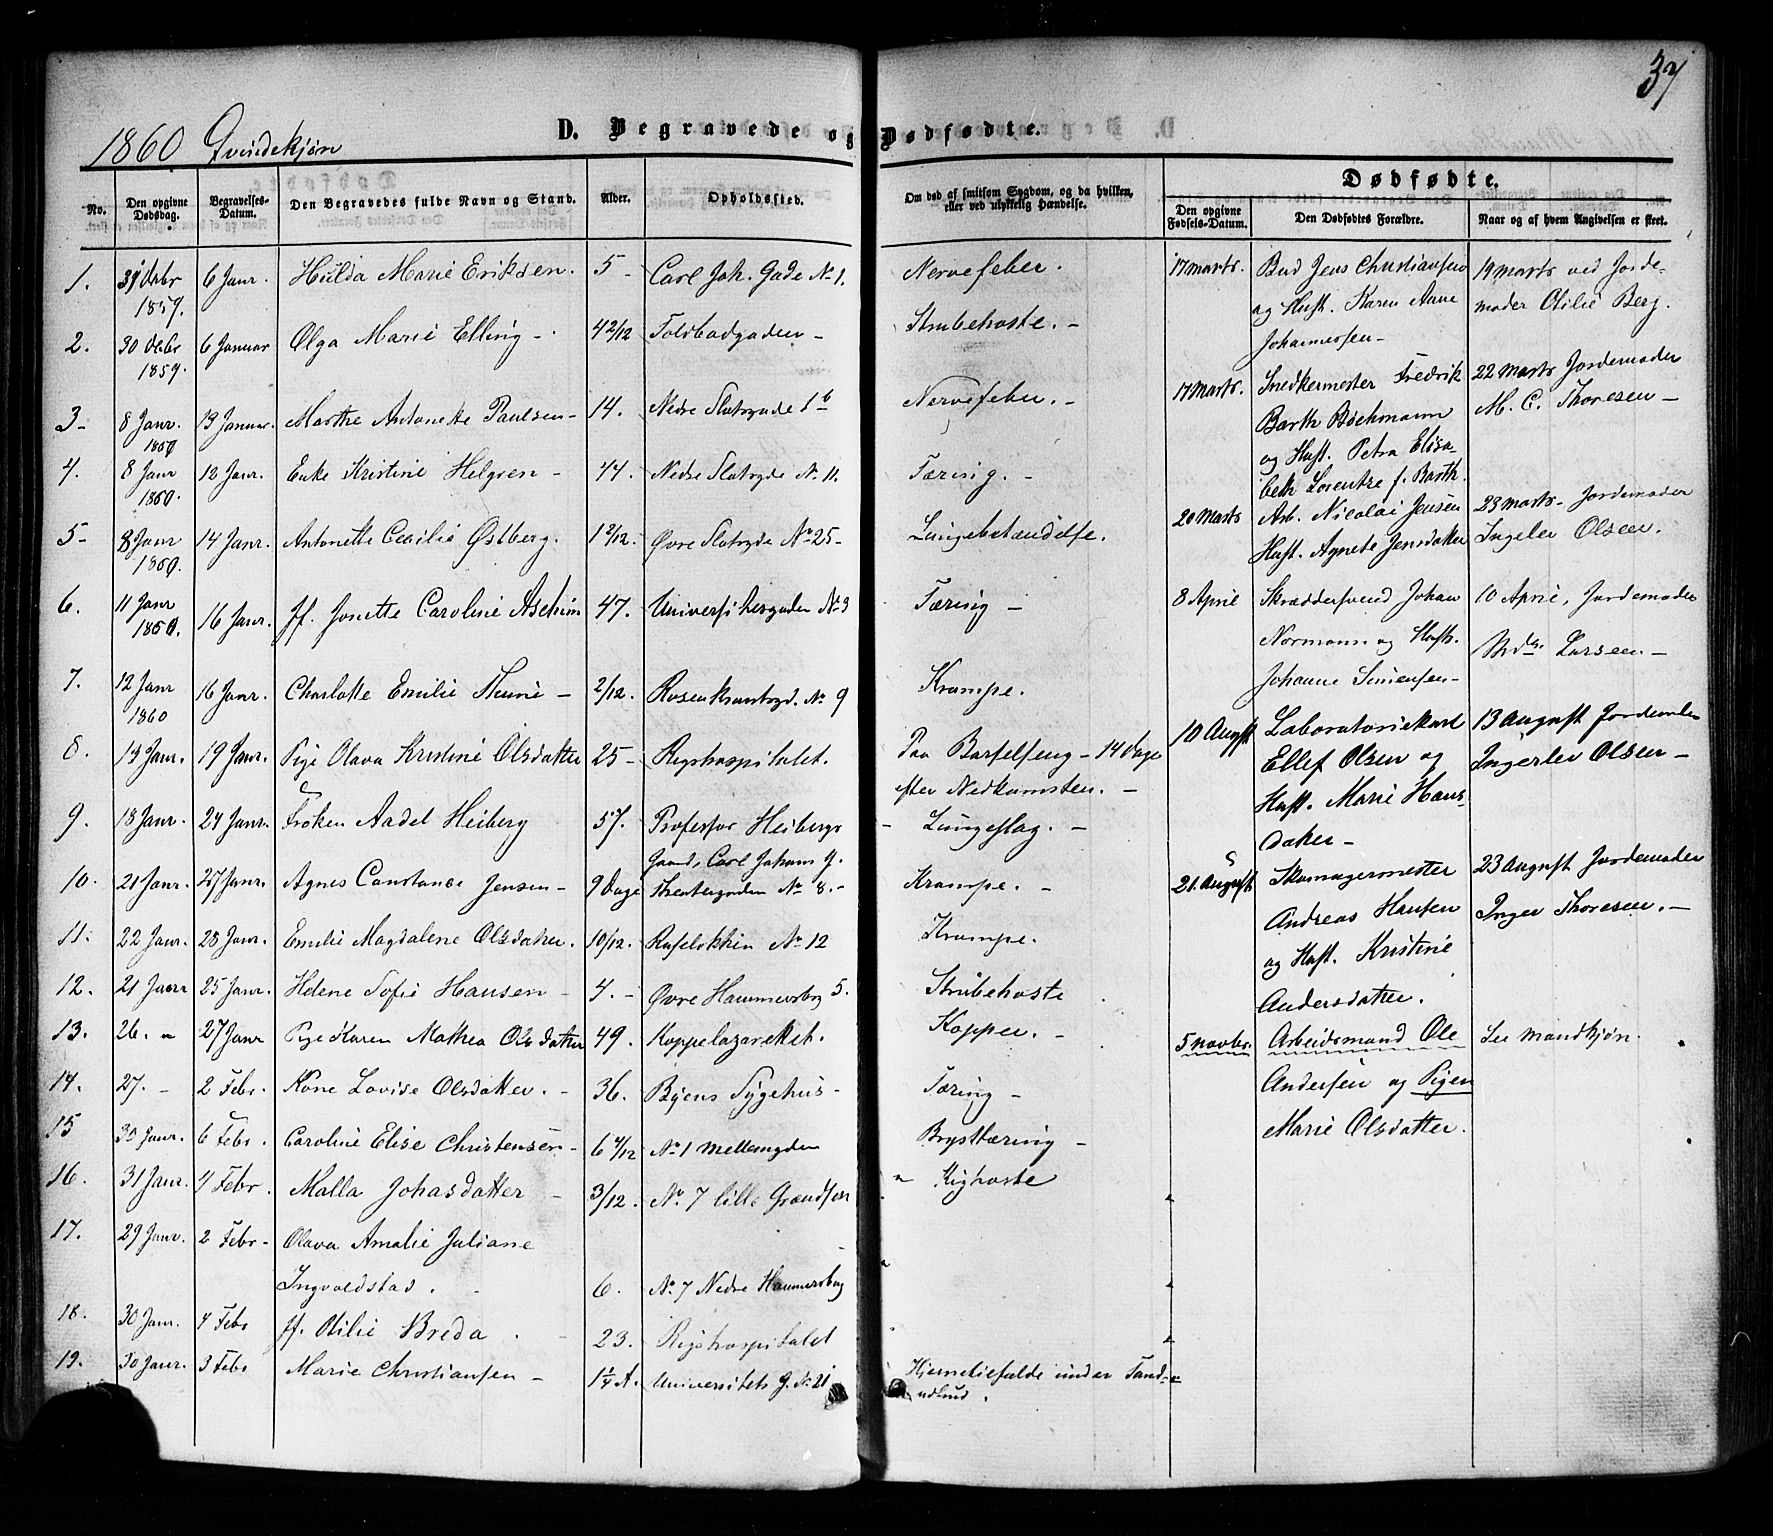 37
1860 Qvindekjøn
D. Begravede og Dødfødte.
No.
Den opgivne Dødsdag.
Begravelses-Datum.
Den Begravedes fulde Navn og Stand.
Alder.
Opholdssted.
Om død af smitsom Sygdom, og da hvilken, eller ved ulykkelig Hændelse.
Dødfødte.
Den opgivne Fødsels-Datum.
Den Dødfødtes Forældre.
Naar og af hvem Angivelsen er skeet.
1. 31 Debr 1859. 6 Janr. Hulda Marie Eriksen. 5 - Carl Joh. Gade No 1. Nervefeber.
2. 30 Debr 1859. 6 Januar Olga Marie Elling - 4 2/12 Toldbodgaden - Strubehoste. -
3 - 8 Janr. 1860 13 Januar. Marthe Antonette Paulsen - 14. Nedre Slotsgade 1 b Nervefeber. -
4. 8 Janr 1860. 12 Janr. Enke Kristine Helgren - 44. Nedre Slotsgde No 11. Tæring. -
5 - 8 Janr 1860. 14 Janr. Antonette Cecilie Østberg. 1 2/12. Øvre Slotsgde No 25 - Lungebetændelse.
6. 11 Janr 1860. 16 Janr. Jf. Jonette Caroline Aseheim 47. Universitetsgaden No 3 Tæring -
7. 12 Janr 1860 16 Janr. Charlotte Emilie Thune - 2/12. Rosenkrantzgd. No 9 Krampe.
8. 13 Janr. 19 Janr. Pige Olava Kristine Olsdatter 25 - Rigshospitalet. Paa Barselseng - 14 Dage
efter Nedkomsten. -
9. 18 Janr. 24 Janr. Frøken Aadel Heiberg 57. Professor Heibergs - Lungeslag. -
Gaard, Carl Johans G.
10. 21 Janr. 27 Janr. Agnes Constance Jensen - 9 Dage Theatergaden No 8. - Krampe. -
11. 22 Janr. 28 Janr. Emilie Magdalene Olsdatter. 10/12. Ruseløkken No 12 Krampe.
12. 21 Janr 25 Janr. Helene Sofie Hansen - 4. - Øvre Hammersbog 5. Strubehoste
13. 26. " 27 Janr Pige Karen Mathea Olsdatter 49. Koppelazarettet. Kopper. -
14. 27. - 2 Febr. Kone Lovise Olsdatter. - 36. Byens Sygehus - Tæring -
15 30 Janr. 6 Febr. Caroline Elise Christensen - 6 4/12 No 1 Mellemgden Brysttæring -
16. 31 Janr. 4 Febr. Malla Johasdatter - 3/12. No. 7 lille Grændsen " Kighoste
17. 29 Janr. 2 Febr - Olava Amalie Juliane
Ingvoldstad. 6. No. 7 Nedre Hammersbog
18. 30 Janr. 4 Febr Jf. Otilie Breda. - 23. Rigshospitalet
19. 30 Janr. 3 Febr Marie Christiansen - 1 1/4 A. Universitets G. No 21 Hjernetilfælde under Tand-
udbrud.
17 Marts. Bud Jens Christiansen
og Hust. Karen Anne
Johannessen -
19 Marts ved Jorde-
moder Otilie Berg.
17 Marts. Snedkermester Fredrik
Barth Bochmann
og Hust. Petra Elisa-
beth Lorentze f. Barth.
22 Marts Jordemoder
M. C. Thoresen -
20 Marts Arb. Nicolai Jensen
Hust. Agnete Jensdatter
23 Marts - Jordemoder
Ingeler Olsen.
8 April Skræddersvend Johan
Normann og Hust.
Johanne Simensen -
10 April, Jordemoder
Mde Larsen -
10 August Laboratoriekarl
Ellef Olsen og
Hust. Marie Hans-
datter -
13 August Jordemoder
Ingerlev Olsen -
21. August Skomagermester
Andreas Hansen
og Hust. Kristine
Andersdatter.
23 August Jordemoder
Inger Thoresen. -
5 Novbr. Arbeidsmand Ole
Andersen og Pigen
Marie Olsdatter.
See Mandkjøn.